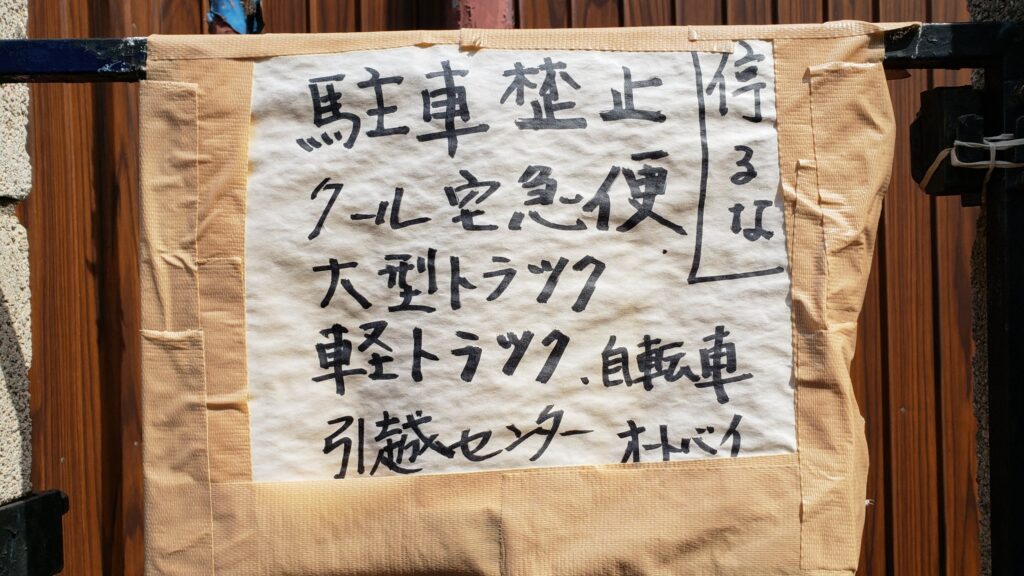 駐車禁止
クール宅急便
大型トラック
車軽トラック、自転車
引越センター オートバイ
停るな